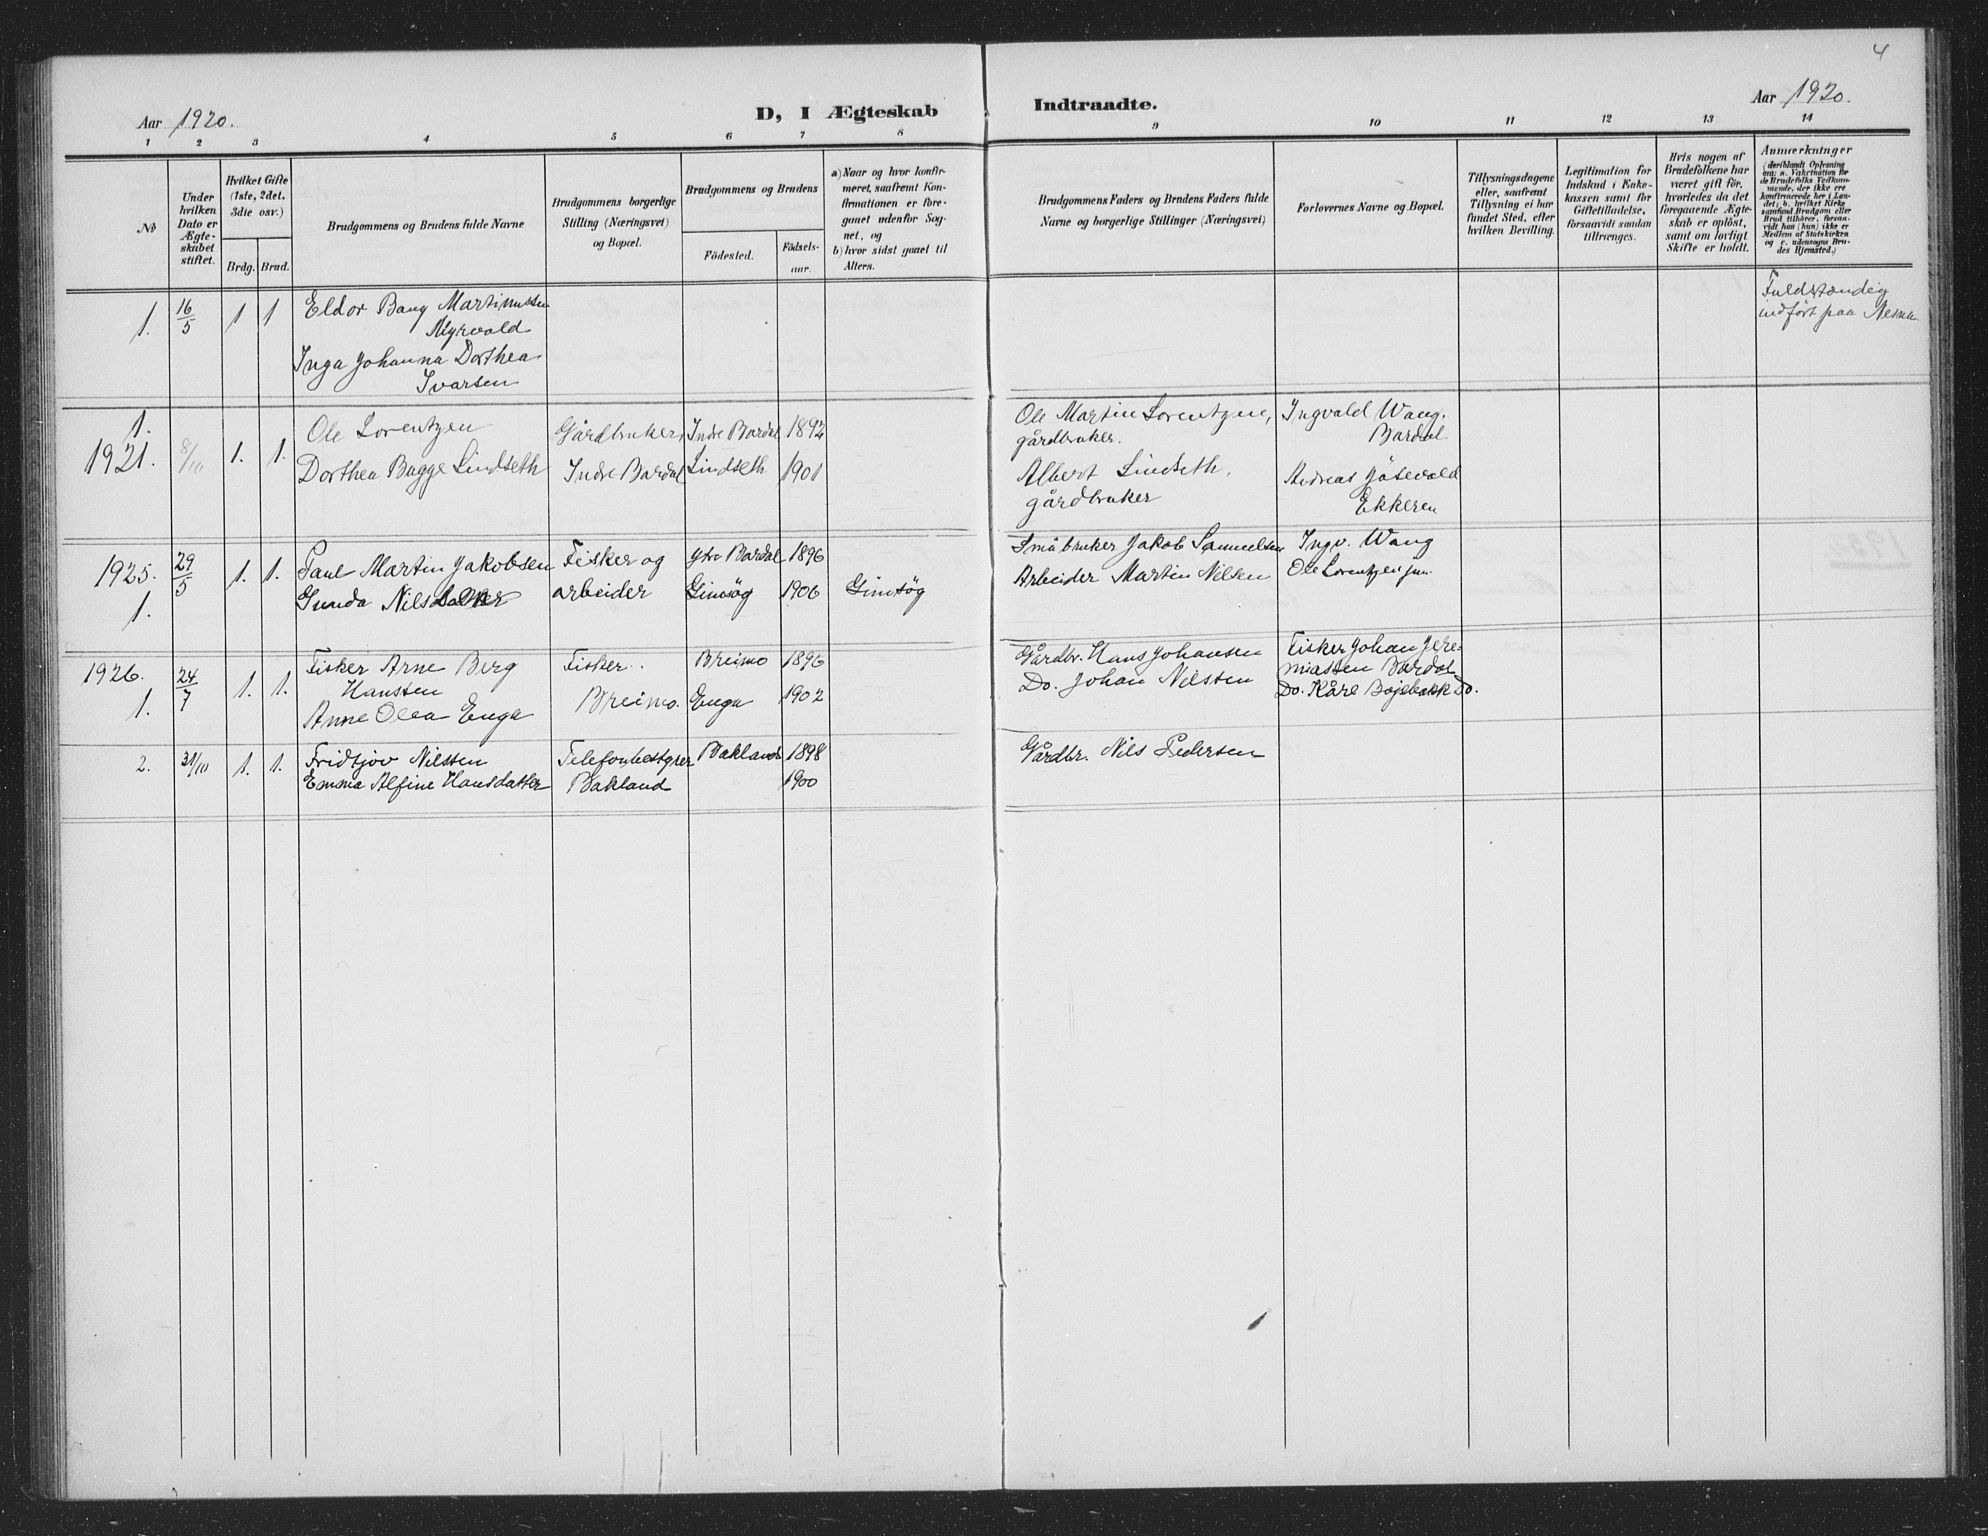 4
Aar 1920.
D, I Ægteskab
Indtraadte.
Aar 1920.
1 2 3 4 5 6 7 8 9 10 11 12 13 14
No
Under
hvilken
Dato er
Ægte-
skabet
stiftet.
Hvilket Gifte
(1ste, 2det,
3die osv.)
Brdg. Brud.
Brudgommens og Brudens fulde Navne
Brudgommens borgerlige
Stilling (Næringsvei)
og Bopæl.
Brudgommens og Brudens
Fødested.
Fødsels-
aar.
a) Naar og hvor konfir-
meret, saafremt Kon-
firmationen er fore-
gaaet udenfor Sog-
net, og
b) hvor sidst gaaet til
Alters.
Brudgommens Faders og Brudens Faders fulde
Navne og borgerlige Stillinger (Næringsvei)
Forlovernes Navne og Bopæl.
Tillysningsdagene
eller, saafremt
Tillysning ei har
fundet Sted, efter
hvilken Bevilling.
Legitimation for
Indskud i Enke-
kassen samt for
Giftetilladelse,
forsaavidt saadan
tiltrænges.
Hvis nogen af
Brudefolkene har
været gift før,
hvorledes da det
foregaaende Ægte-
skab er opløst,
samt om lovligt
Skifte er holdt.
Anmærkninger
(deriblandt Oplysning
om: a. Vakcination for
de Brudefolks Vedkom-
mende, der ikke ere
konfirmerede her i Lan-
det; b. hvilket Kirke
samfund Brudgom eller
Brud tilhører, forsaa-
vidt han (hun) ikke er
Medlem af Statskirken
og c. udensogns Bru-
des Hjemsted.)
1. 16/5 1 1 Eldor Bang Martinussen
Myrvold
Inga Johanna Dorthea
Ivarsen
Fuldstændig
indført paa Nesna.
1.
1921. 8/10 1. 1. Ole Lorentzen
Dorthea Bagge Lindseth
Gårdbruker,
Indre Bardal
Indre Bardal 1892
Lindseth 1901
Ole Martin Lorentzen,
gårdbruker.
Albert Lindseth,
gårdbruker
Ingvald Wang.
Bardal
Andreas
Ekkeren
1925. 29/5 1. 1. Paul Martin Jakobsen
1. Gunda
Fisker og
arbeider
Ytre Bardal 1896
Gimsøg 1906 Gimsøg
Småbruker Jakob Samuelsen
Arbeider Martin Nilsen
Ingv. Wang
Ole Lorentzen jun.
1926. 24/7 1. 1. Fisker Arne Berg
Hanssen
1. Anne Olea Enga
Fisker.
Breimo.
Breimo 1896
Enga 1902
Gårdbr. Hans Johansen
Do. Johan Nilssen
Fisker Johan Jere-
miassen Bardal
Do. Kåre
Do.
2. 31/10 1. 1. Fridtjov Nilssen
Emma Alfine Hansdatter
Telefonbestyrer
Bakland
Bakland 1898
1900
Gårdbr. Nils Pedersen